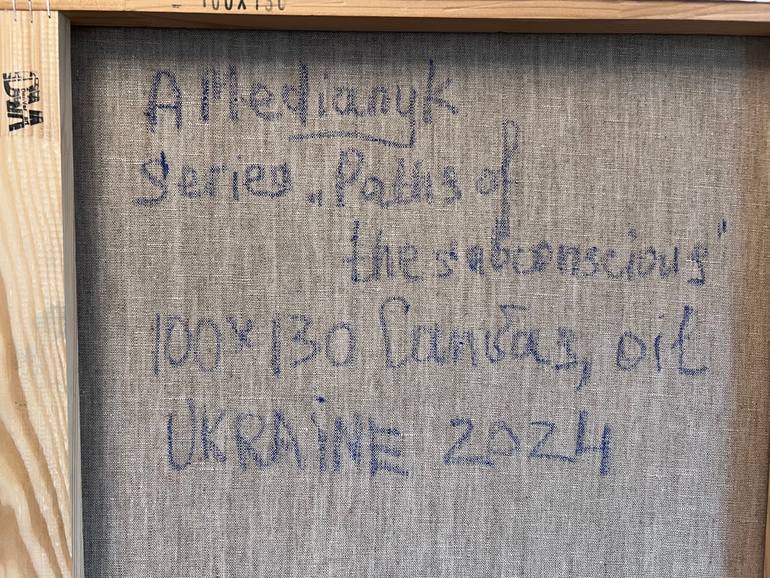 100X130
A Medianyk
Series „Paths of
the subconscious"
100×130 Canvas, oil
UKRAINE 2024